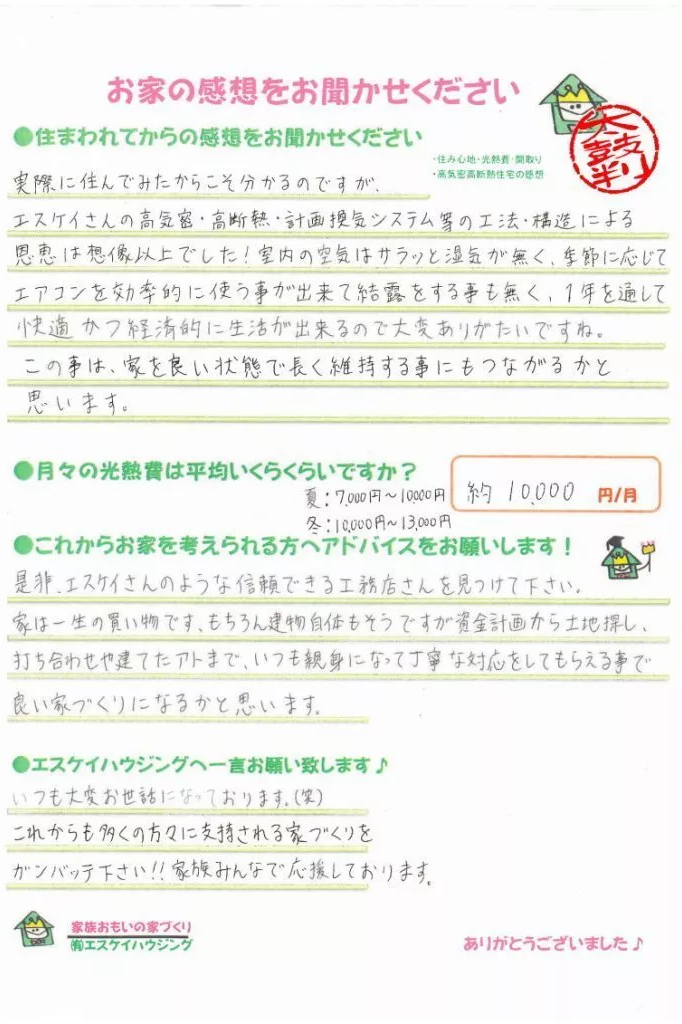 お家の感想をお聞かせください
太鼓判
●住まわれてからの感想をお聞かせください
・住み心地・光熱費・間取り
・高気密高断熱住宅の感想
実際に住んでみたからこそ分かるのですが、
エスケイさんの高気密・高断熱・計画換気システム等の工法・構造による
恩恵は想像以上でした!室内の空気はサラッと湿気が無く、季節に応じて
エアコンを効率的に使う事が出来て結露をする事も無く、1年を通して
快適かつ経済的に生活が出来るので大変ありがたいですね。
この事は、家を良い状態で長く維持する事にもつながるかと
思います。
●月々の光熱費は平均いくらくらいですか?
夏:7,000円~10,000円
冬:10,000円~13,000円
約10,000 円/月
●これからお家を考えられる方へアドバイスをお願いします!
是非、エスケイさんのような信頼できる工務店さんを見つけて下さい。
家は一生の買い物です、もちろん建物自体もそうですが資金計画から土地探し、
打ち合わせや建てたアトまで、いつも親身になって丁寧な対応をしてもらえる事で
良い家づくりになるかと思います。
●エスケイハウジングへ一言お願い致します♪
いつも大変お世話になっております。(笑)
これからも多くの方々に支持される家づくりを
ガンバッテ下さい!!家族みんなで応援しております。
家族おもいの家づくり
㈲エスケイハウジング
ありがとうございました♪